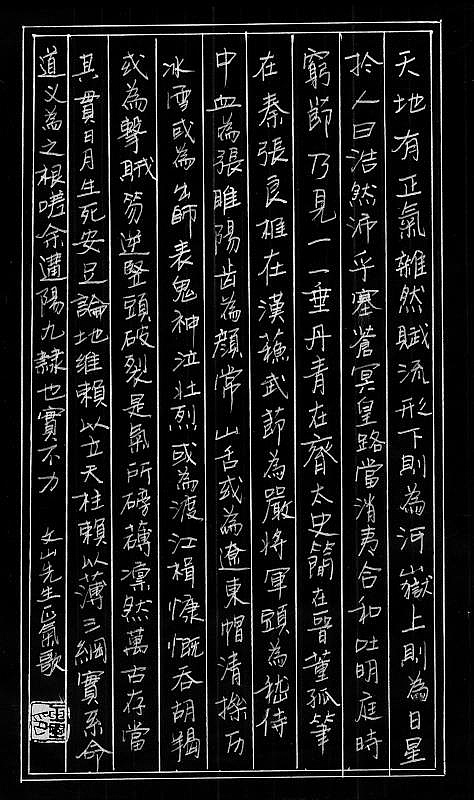 天地有正氣雜然賦流形下則為河嶽上則為日星
於人曰浩然沛乎塞蒼冥皇路當清夷含和吐明庭時
窮節乃見一一垂丹青在齊太史簡在晉董狐筆
在秦張良椎在漢蘇武節為嚴將軍頭為嵇侍
中血為張睢陽齒為顏常山舌或為遼東帽清操历
冰雪或為出師表鬼神泣壯烈或為渡江楫慷慨吞胡羯
或為擊賊笏逆豎頭破裂是氣所磅礴凜然萬古存當
其貫日月生死安足論地維賴以立天柱賴以薄三綱實系命
道义為之根嗟余遘陽九隸也實不力 文山先生正氣歌